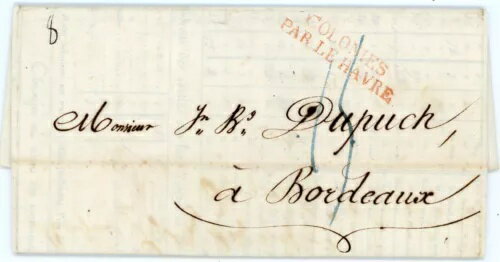 8
COLONIES
PAR LE HAVRE
Monsieur Jn Bs Dupuch,
à Bordeaux